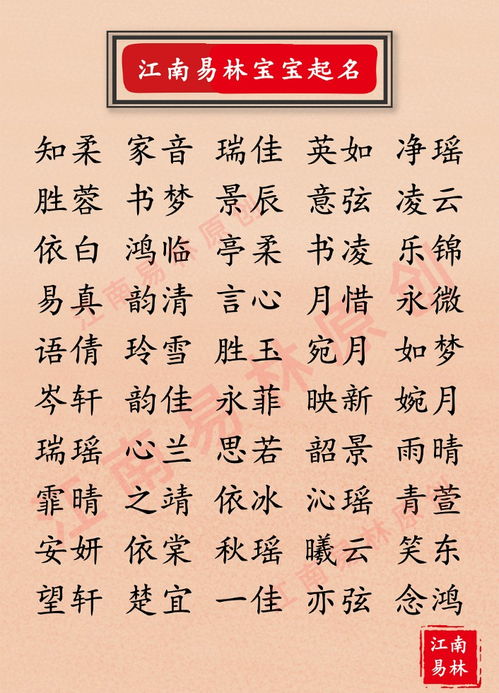 江南易林宝宝起名
知柔 家音 瑞佳 英如 净瑶
胜蓉 书梦 景辰 意弦 凌云
依白 鸿临 亭柔 书凌 乐锦
易真 韵清 言心 月惜 永微
语倩 玲雪 胜玉 宛月 如梦
岑轩 韵佳 永菲 映新 婉月
瑞瑶 心兰 思若 韶景 雨晴
霏晴 之靖 依冰 沁瑶 青萱
安妍 依棠 秋瑶 曦云 笑东
望轩 楚宜 一佳 亦弦 念鸿
江南易林原创
江南易林原创
江南易林原创
江南
易林